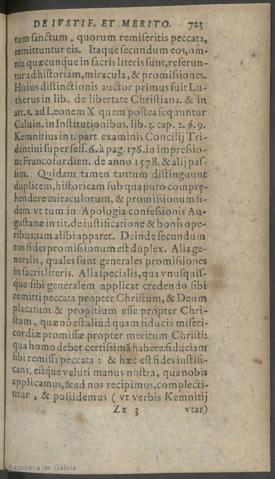 DE IVSTIF. ET MERITO. 723
tum sanctum, quorum remiseritis peccata,
remittuntur eis. Itaque secundum eos, om-
nia quæcunque in sacris literis sunt, referun-
tur ad historiam, miracula, & promissiones.
Huius distinctionis auctor primus fuit Lu-
therus in lib. de libertate Christiana. & in
art. 1. ad Leonem X quem postea sequuntur
Caluin. in Institutionibus. lib. 3. cap. 2. §. 9.
Kemnitius in 1. part examinis Concilij Tri-
dentini super sess. 6. à pag. 176. in impressio-
ne Francofurdien. de anno 1578. & alij pas-
sim. Quidam tamen tantum distinguunt
duplicem, historicam sub qua puto compre-
hendere miraculorum, & promissionum fi-
dem vt tum in Apologia confessionis Au-
gustanæ in tit. de iustificatione & bonis ope-
ribus, tam alibi apparet. Deinde secundum
eos fides promissionum est duplex. Alia ge-
neralis, quales sunt generales promissiones
in sacris literis. Alia specialis, qua vnusquis-
que sibi generalem applicat credendo sibi
remitti peccata propter Christum, & Deum
placatum & propitium esse propter Chri-
stum, quæ nō est aliud quam fiducia miseri-
cordiæ promissæ propter meritum Christi:
qua homo debet certissimā habere fiduciam
sibi remissa peccata: & hæc est fides iustifi-
cans, estque veluti manus nostra, qua nobis
applicamus, & ad nos recipimus, complecti-
mur, & possidemus (vt verbis Kemnitij
Zz 3 vtar)
Biblioteca de Galicia